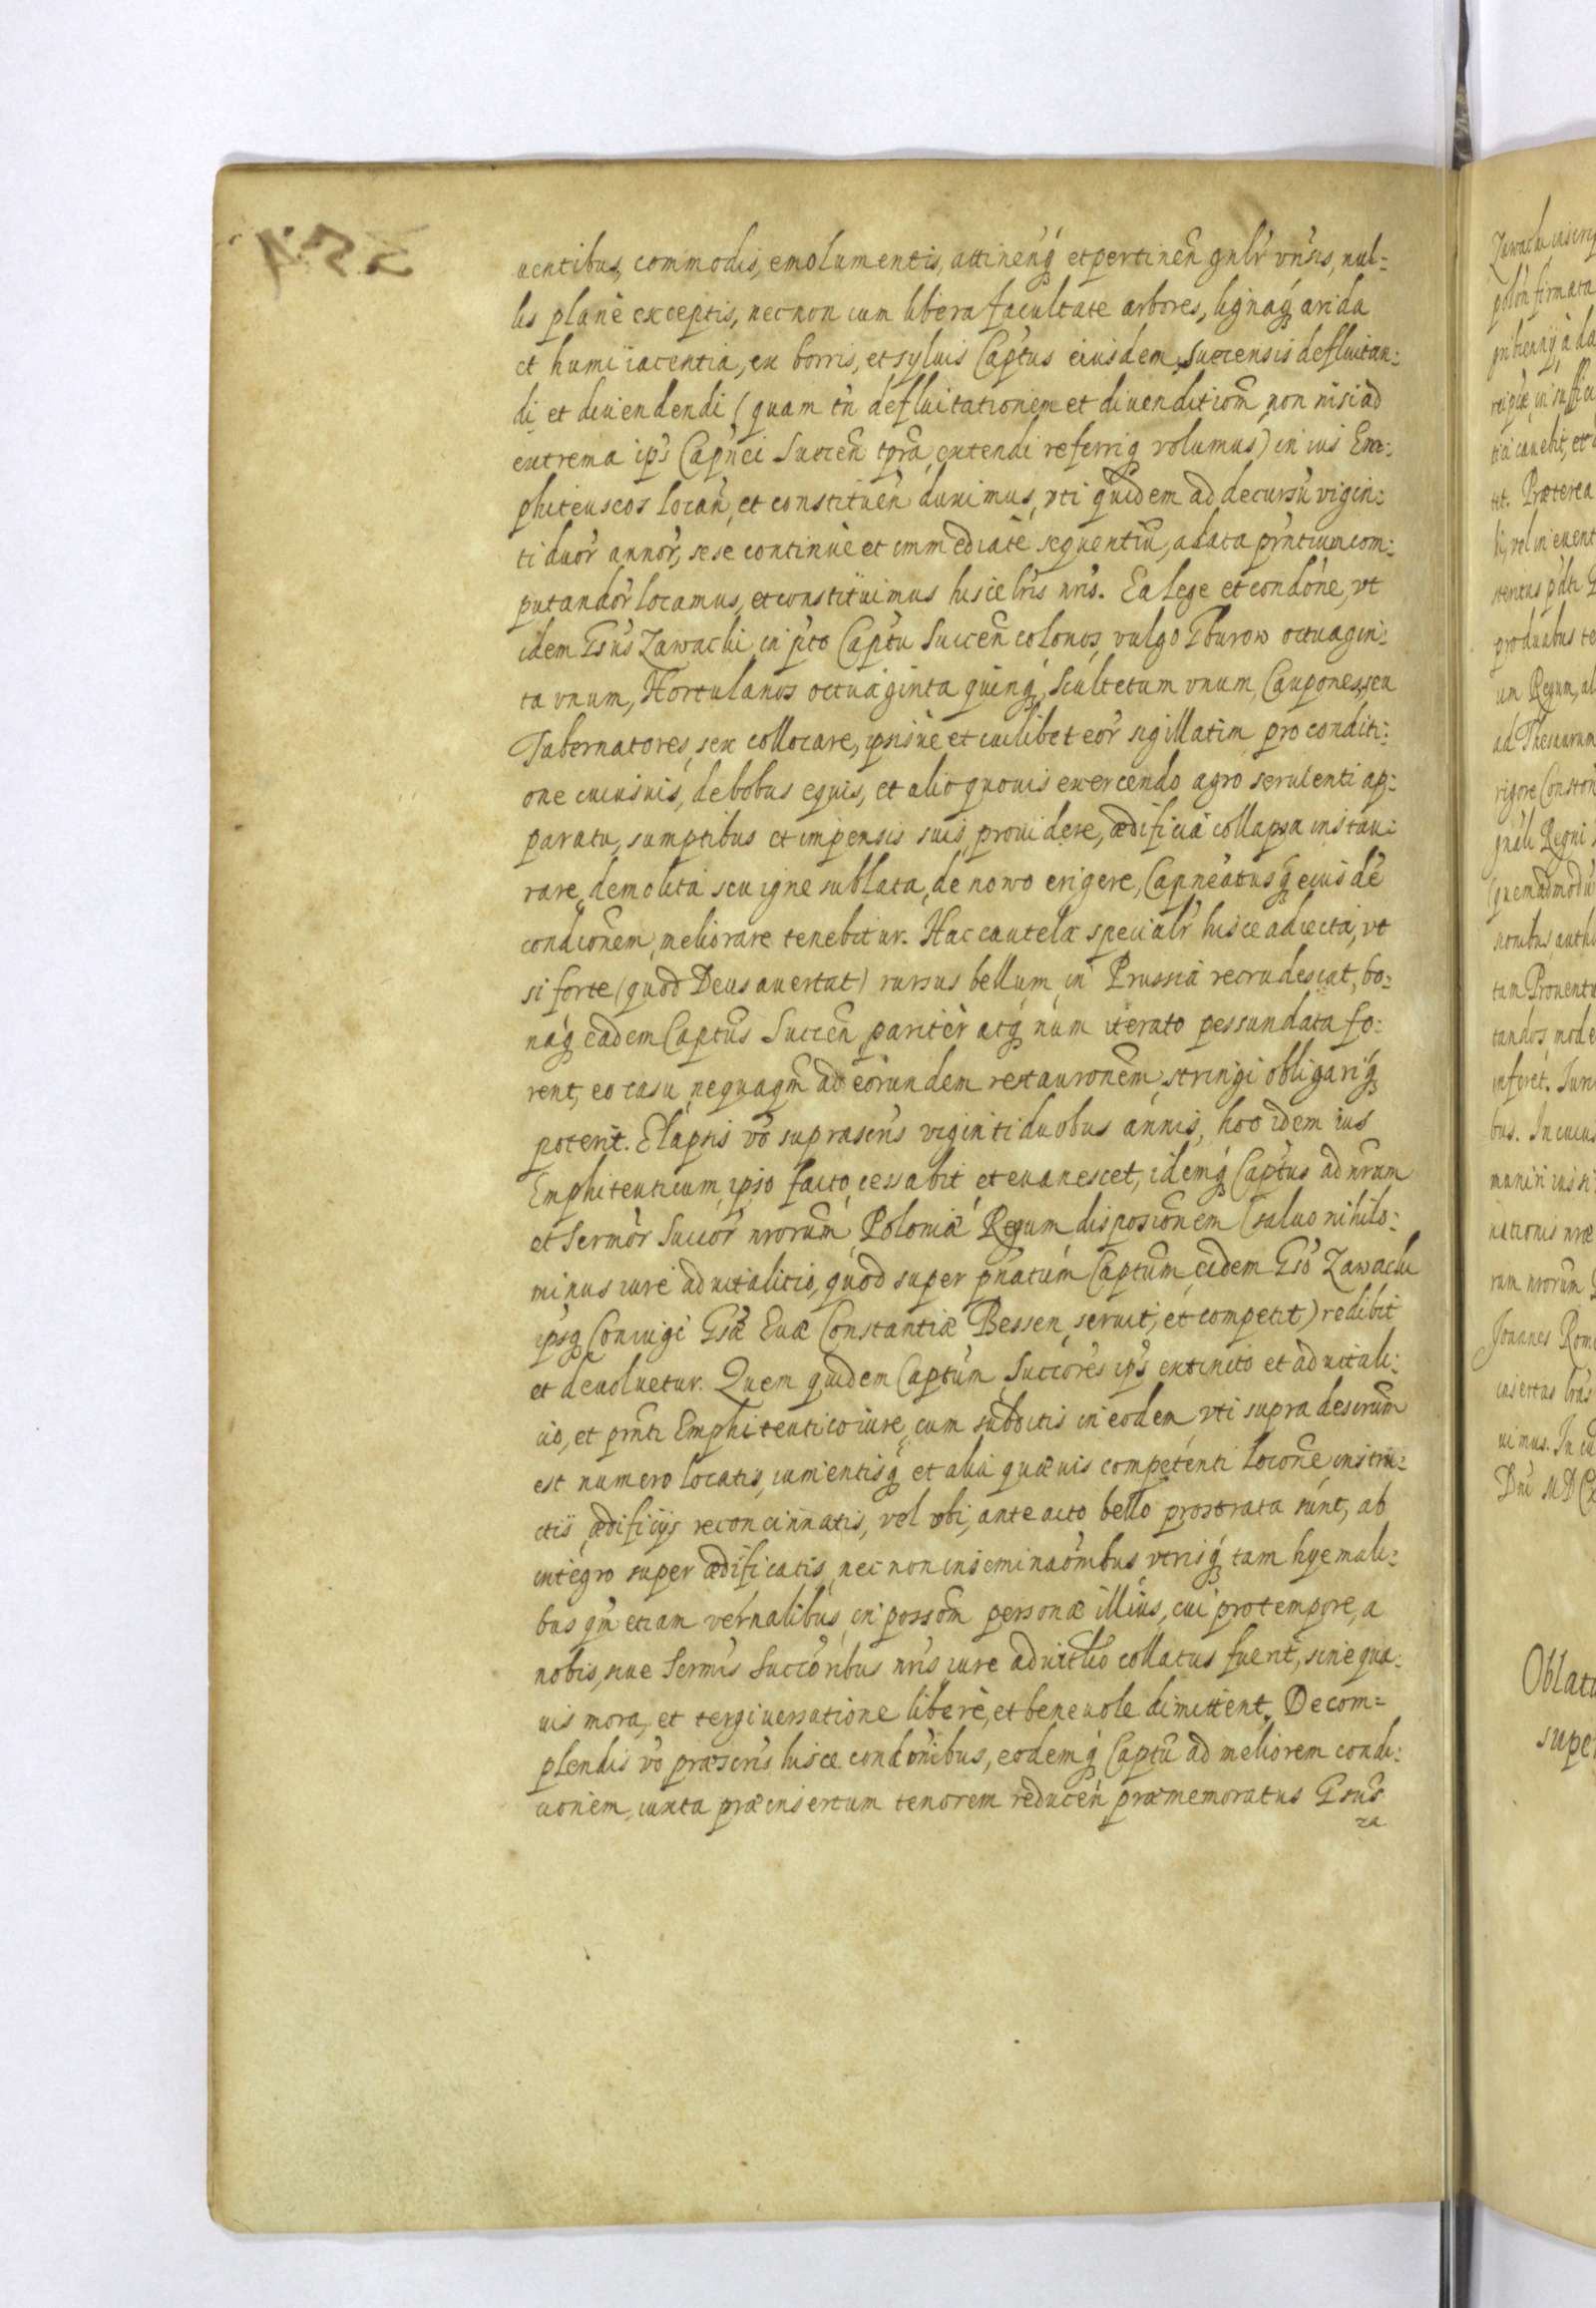 uentibus, commodis, emolumentis, attineńq́ et pertineñ gnlr̃ vn̄sis, nul:
lis planè exceptis, nec non cum libera facultate arbores, lignaq́ arida
et humi iacentia, ex borris, et syluis Capt̄us eiusdem Suecensis defluitan:
di et diuendendi (quam tn̄ defluitationem et diuenditiom̄ non nisi ad
extrema ip̄s Cap̄nei Sueceñ tp̄ra, extendi referriq́ volumus) in ius Em:
phiteuseos locañ, et constitueñ duximus, vti quidem ad decursū vigin:
ti duor̄ annor̄, sese continuè et immediatè sequentiū, a data pr̄ntium com:
putandor̄ locamus, et constituimus hisce lr̄is nr̄is. Ea lege et condōne, vt
idem Gs̄us Zawacki in p̄to Cap̄tu Succeñ colonos, vulgo Gburow octuagin:
ta vnum, Hortulanos octuaginta quinq́, Scultetum vnum, Caupones, seu
Tabernatores, sex collocare, ipsisue et cuilibet eor̄ sigillatim pro conditi:
one cuiusuis, de bobus equis, et alio quouis exercendo agro seruienti ap:
paratu, sumptibus et impensis suis prouidere, ædificia collapsa instau:
rare, demolita seu igne sublata, de nowo erigere, Capneatusq́ eius dē
condicōnem meliorare tenebitur. Hac cautela specialr̄ hisce adiecta, vt
si forte (quod Deus auertat) rursus bellum in Prussia recrudescat, bo:
naq́ eadem Captūs Succeñ pariter atq́ nūm iterato pessundata fo:
rent, eo casu nequaqm̄ ad eorundem restauronēm stringi obligariq́
poterit. Elapsis vō suprascr̄is viginti duobus annis, hoc idem ius
Emphiteuticum, ipso facto, cessabit et euanescet, idemq́ Cap̄tus ad nr̄am
et Sermor̄ Succor̄ nrorum̄ Poloniæ Regum disposiōnem (saluo nihilo:
minus iure aduitalitio, quod super pn̄atum Captum̄, eidem Gs̄o Zawacki
ipsq́ Coniugi Gsæ Euæ Constantiæ Bessen seruit, et competit) redibit
et deuoluetur. Quem quidem Captum̄ Succores̄ ip̄s extincto et aduitali:
cio, et prn̄ti Emphiteutico iure, cum subditis in eodem, vti supra descrum̄
est numero locatis, iumentisq́ et alia quæuis competenti locōne instru:
ctis ædificijs reconcinnatis, vel vbi, ante acto bello prostrata sunt, ab
integro super ædificatis, nec non inseminaōmibus, vtrisq́ tam hyemali:
bus qm̄ etiam vernalibus, in possom̄ personæ illius, cui pro tempore, a
nobis, siue Sermis̄ Succoribus̄ nr̄is iure aduitlīo collatus fuerit, sine qua:
uis mora, et tergiuersatione liberè, et beneuole dimittent. De com=
plendis vō præscris̄ hisce condōnibus, eodemq́ Captū ad meliorem condi:
cionem, iuxta præinsertum tenorem reduceñ præmemoratus Gsus̄
za